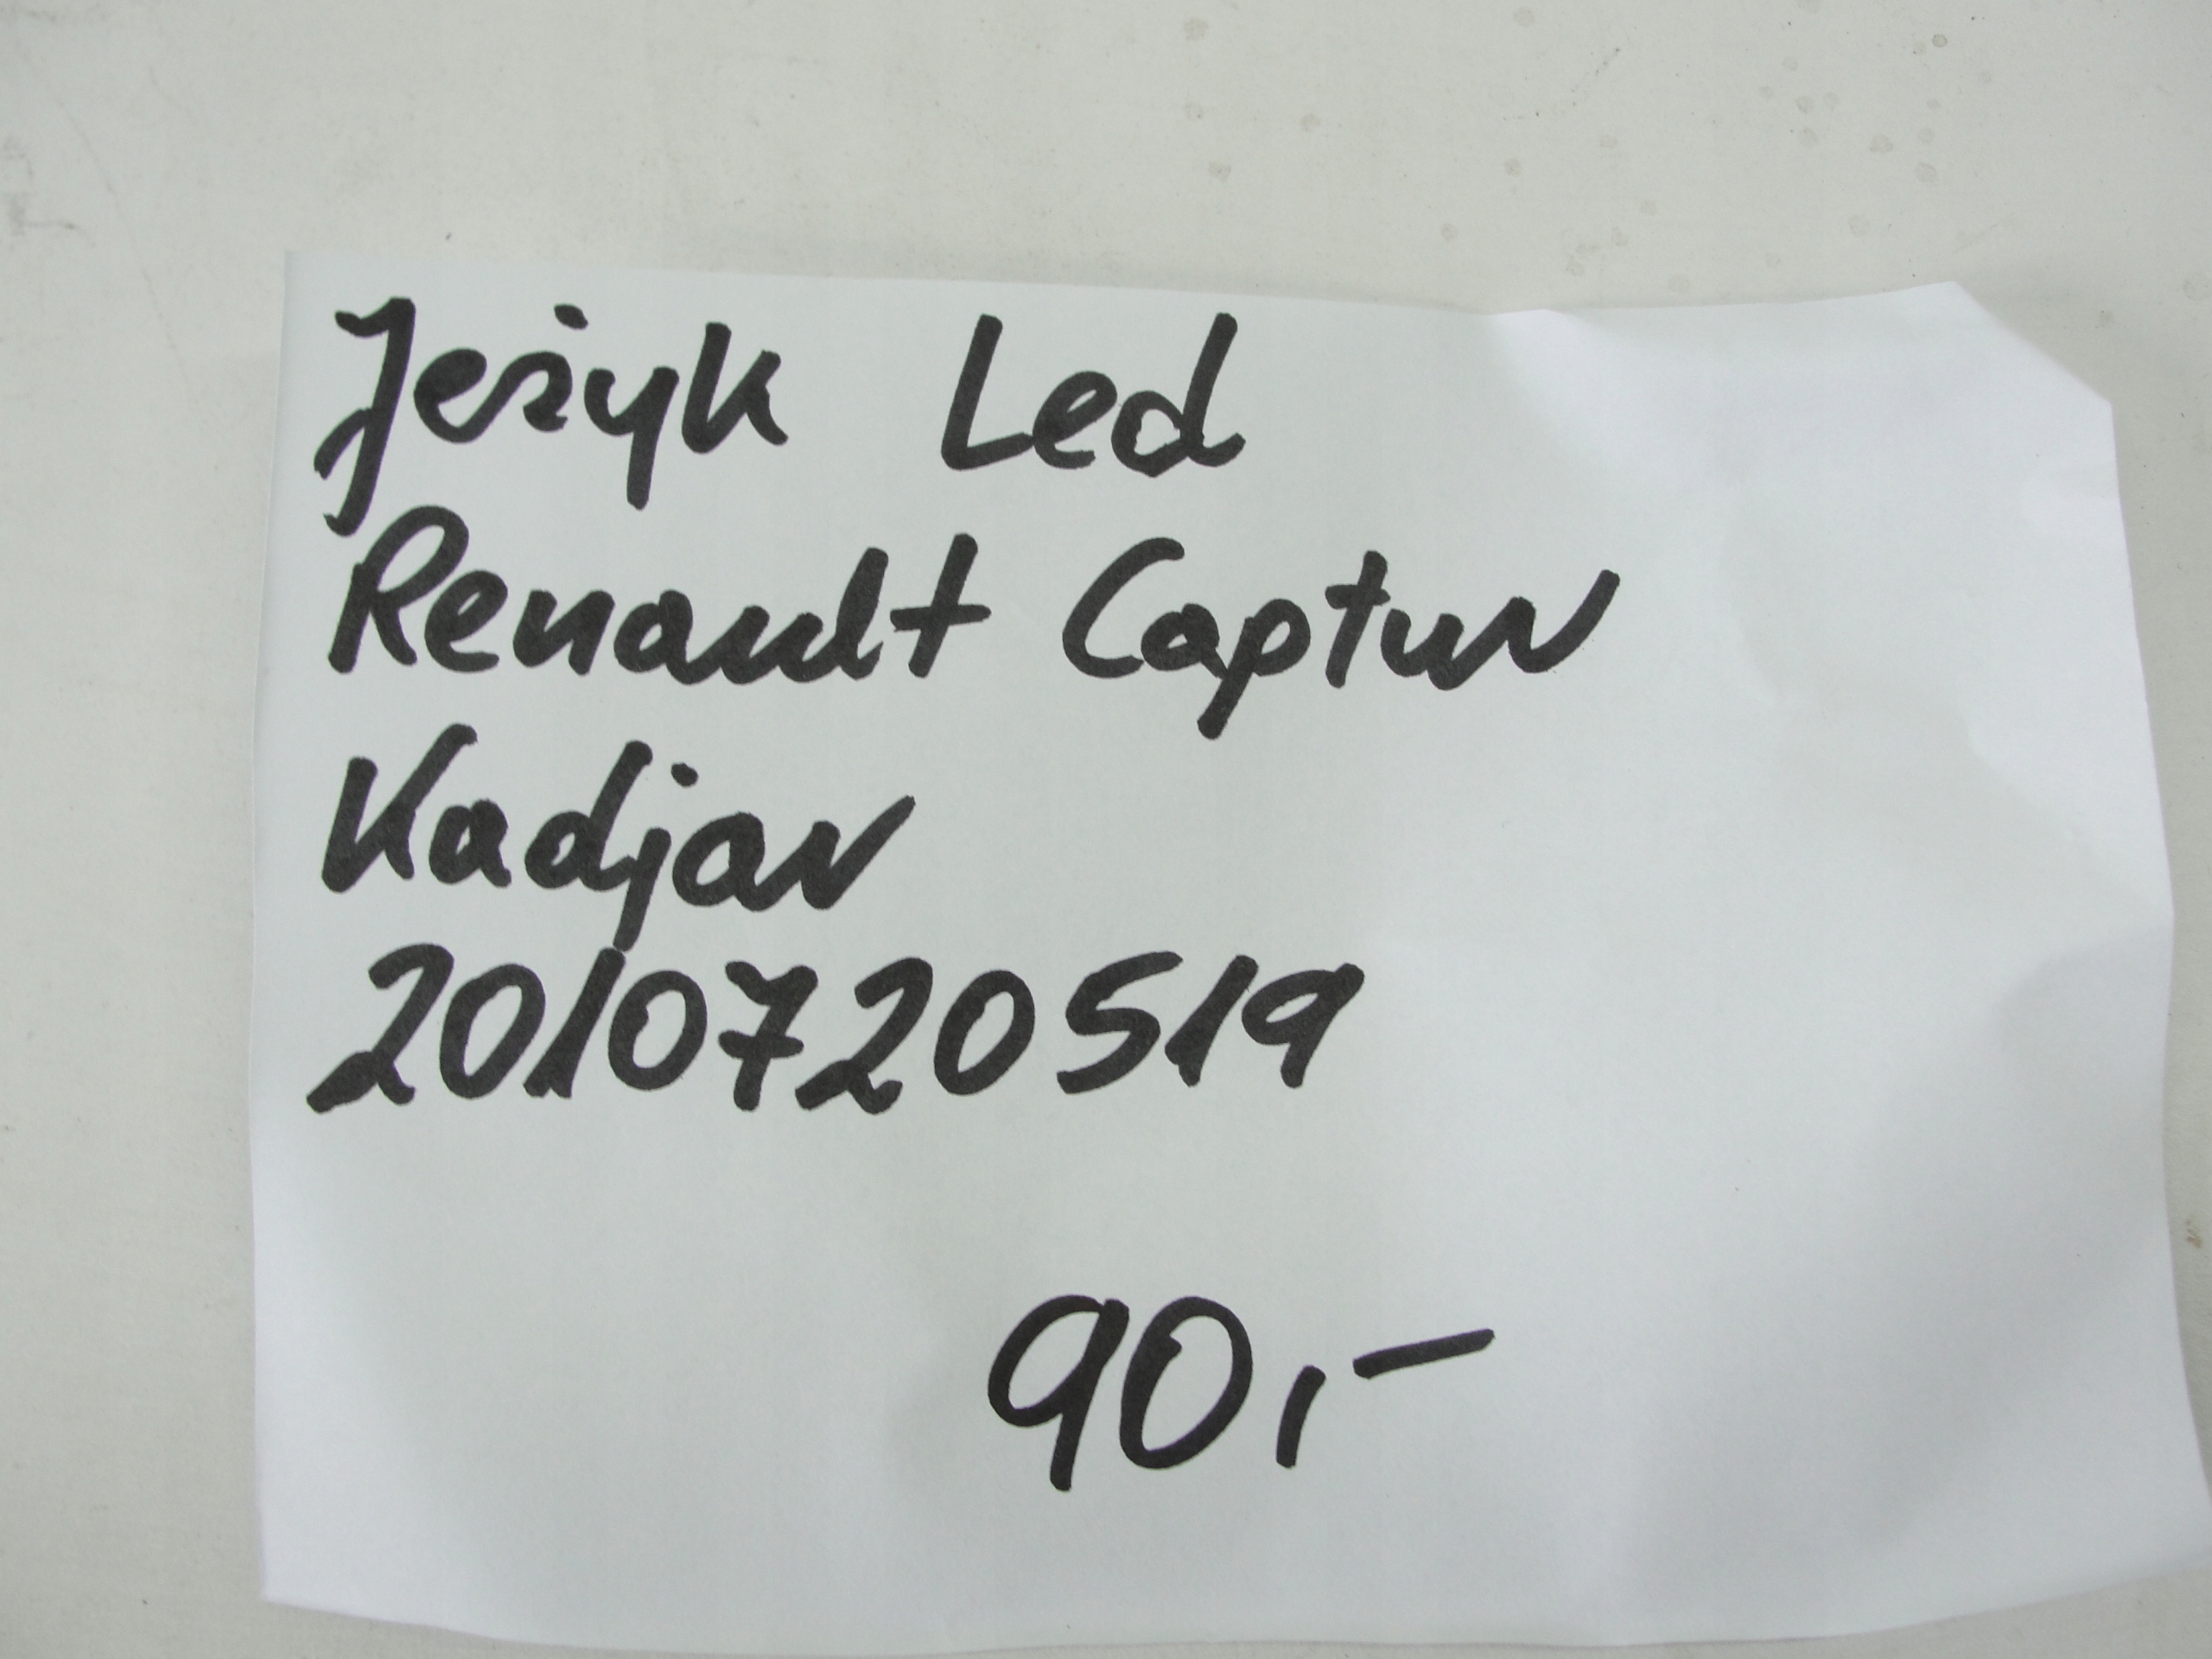 Jeżyk Led
Renault Captur
Kadjar
2010720519
90,-